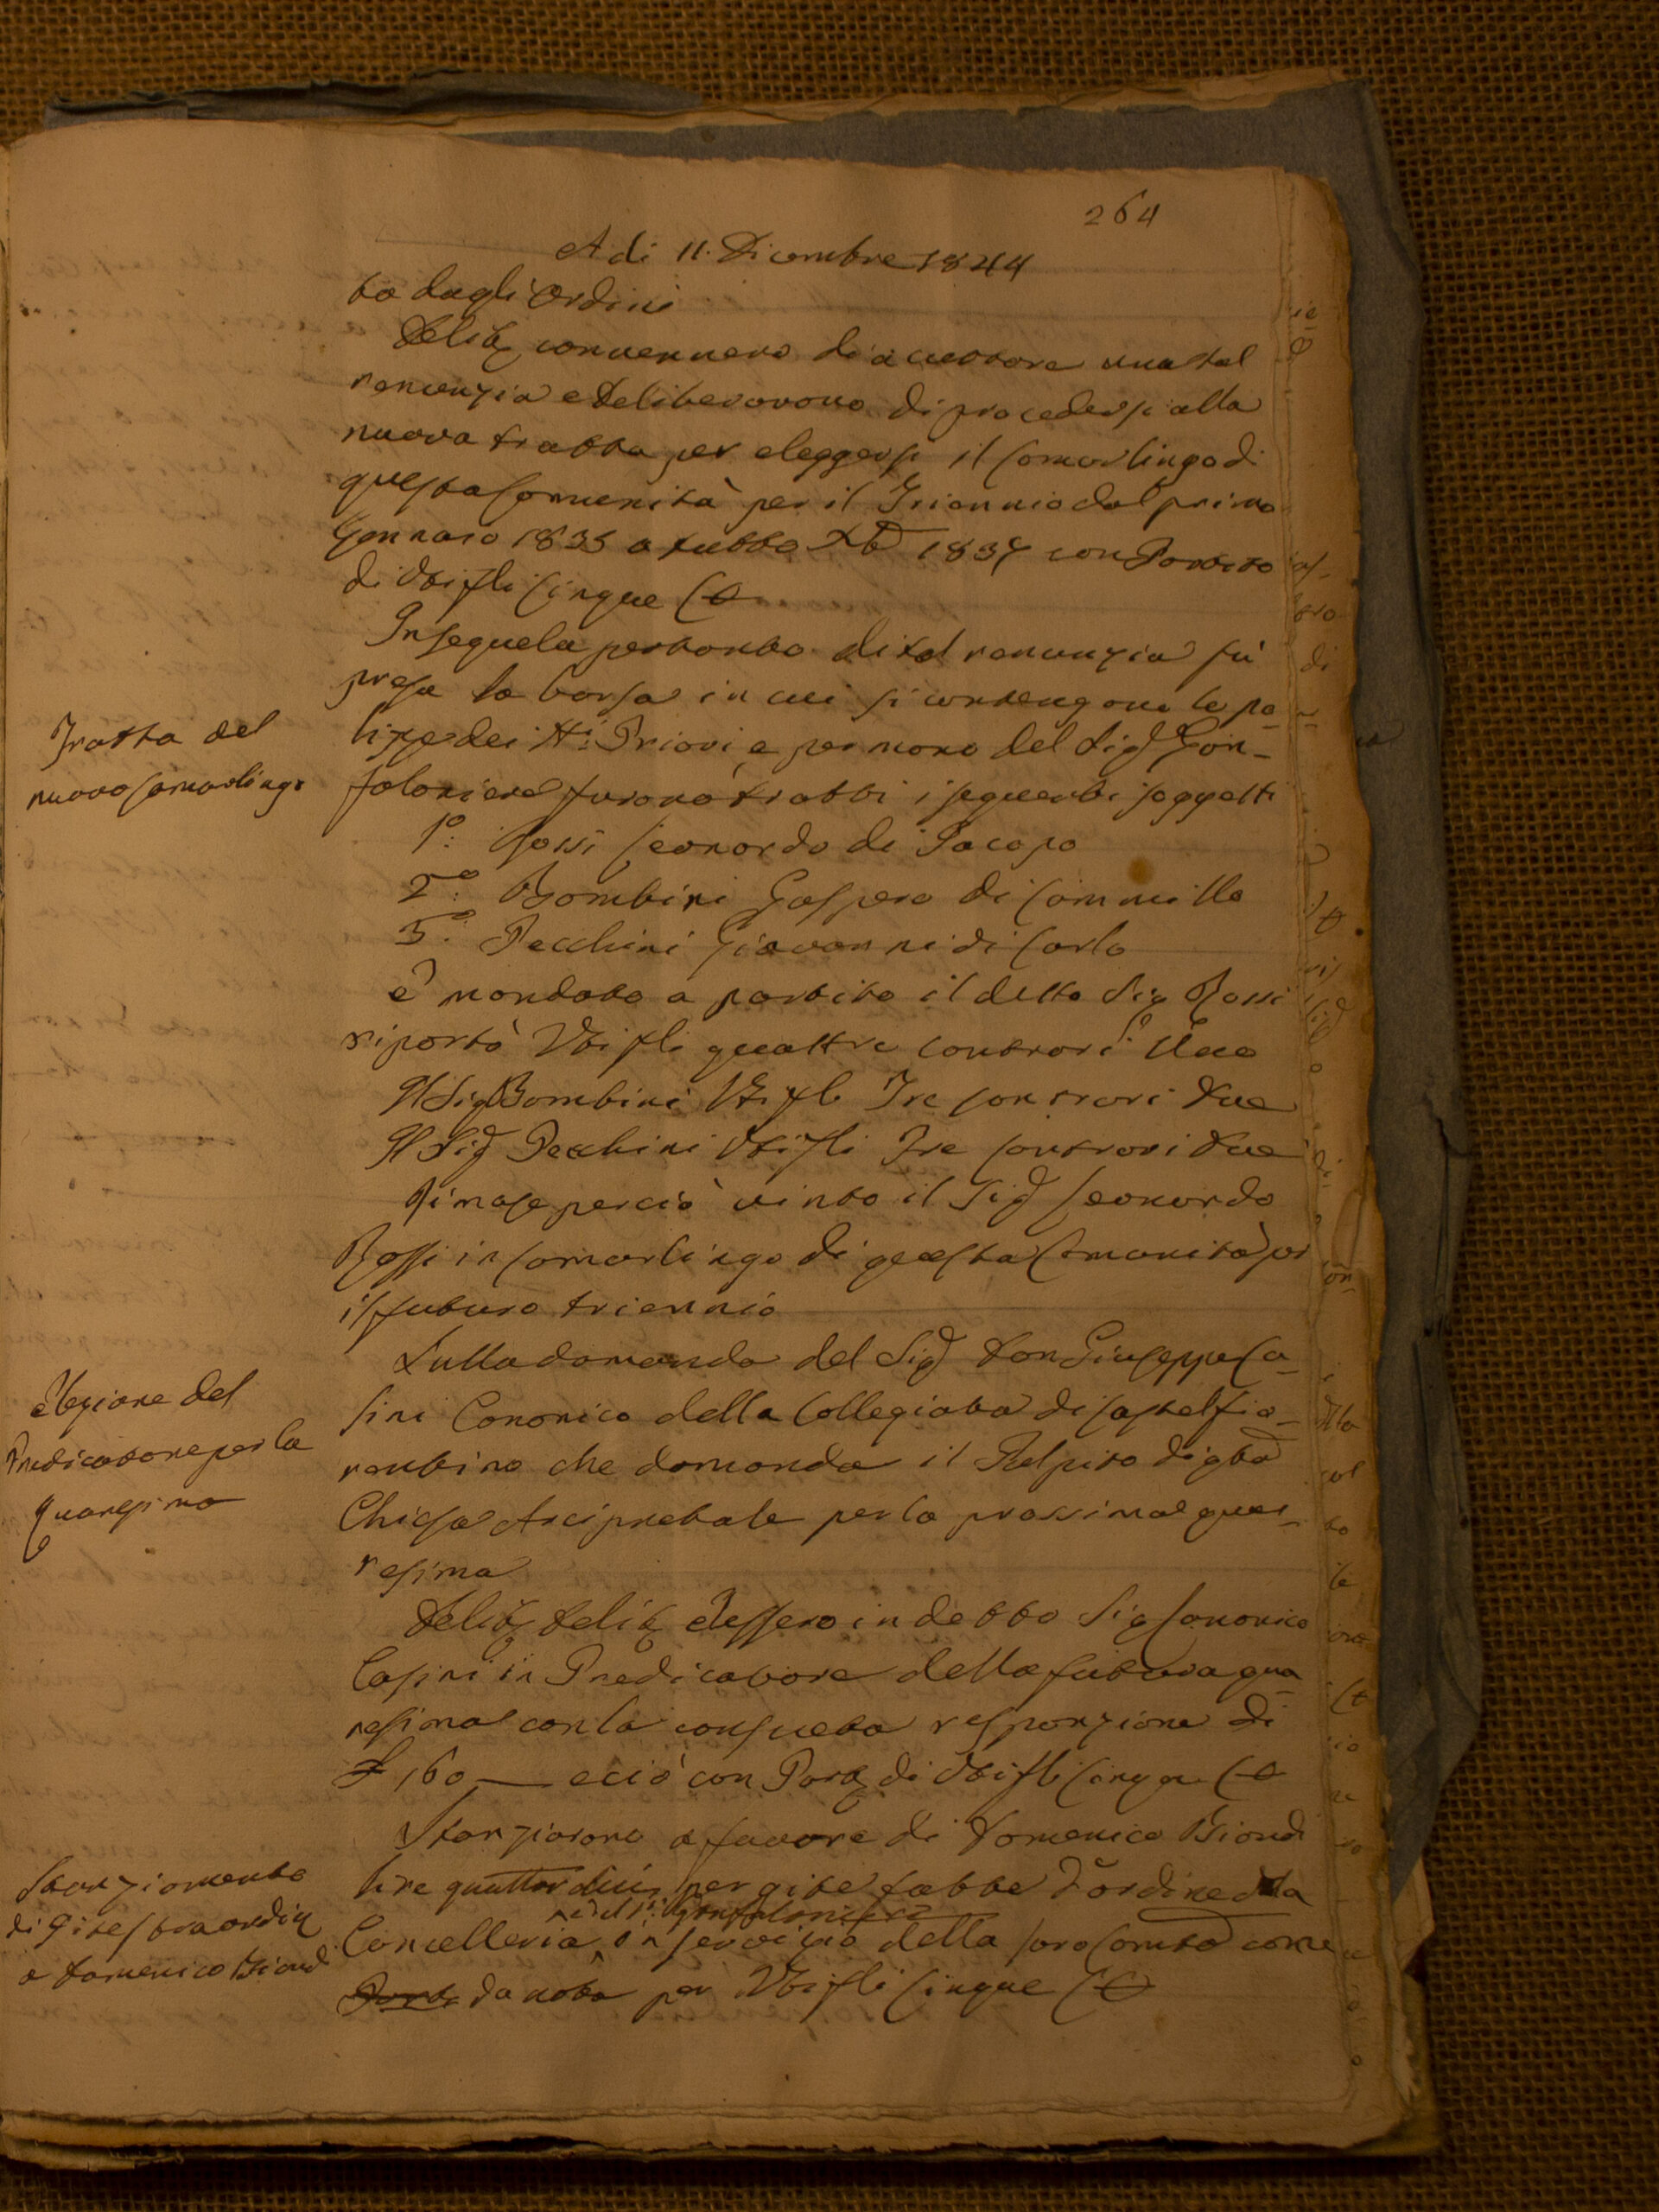 264
A di 11. Dicembre 1844
to dagli Ordini
Delib convennero di accettare una tal
renunzia e deliberarono di procedersi alla
nuova tratta per eleggersi il Camarlingo di
questa Comunità per il Triennio dal primo
Gennaio 1835 a tutto Xb 1837 con Partito
di Vti fli Cinque C
In sequela pertanto di tal renunzia fù
presa la borsa in cui si contengono le po-
Tratta del
nuovo Camarlingo
lizze dei Priori e per mano del Sig Gon-
faloniere furono tratti i seguenti soggetti
1º: Rossi Leonardo di Jacopo
2º: Bombini Gaspero di Cammillo
3º: Pecchini Giovanni di Carlo
E mandato a partito il detto Sig Rossi
riportò Vti fli quattro Contrari Uno
Il Sig Bombini Vti fli Tre Contrari due
Il Sig Pecchini Vti fli Tre Contrari due
Rimase perciò vinto il Sig Leonardo
Rossi in Camarlingo di questa Comunità per
il futuro triennio
Sulla domanda del Sig Don Giuseppe Ca-
Elezione del
Predicatore per la
Quaresima
sini Canonico della Collegiata di Castelfio-
rentino che domanda il Pulpito di qta
Chiesa Arcipretale per la prossima qua-
resima
Delib Delib elessero in detto Sig Canonico
Casini in Predicatore della futura qua
resima con la consueta responzione di
£ 160 — e ciò con Part di Vti fli Cinque C
Stanziarono a favore di Domenico Biondi
Stanziamento
di Gite straordin
a Domenico Biondi
lire quattordici per gite fatte d'ordine della
e del Gonfaloniere
Cancelleria in servizio della loro Comtà come
da nota per Vti fli Cinque C